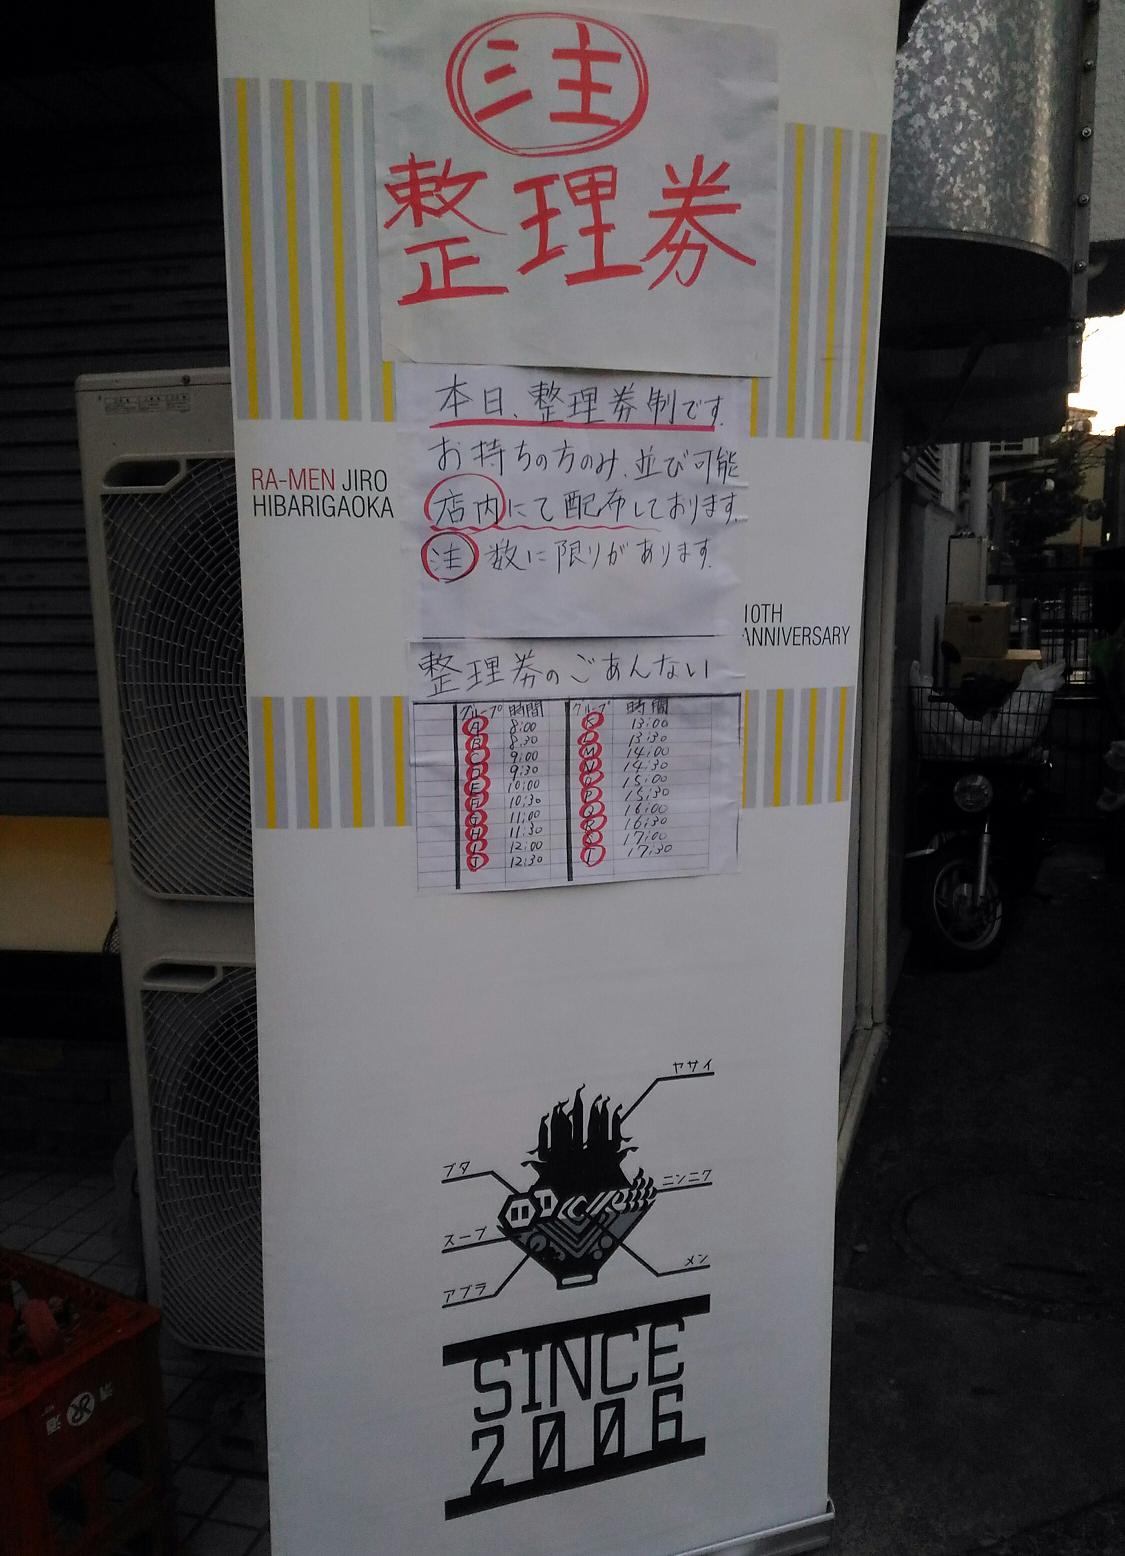 注
整理券
本日、整理券制です。
お持ちの方のみ、並び可能
店内にて配布しております。
注 数に限りがあります。
RA-MEN JIRO
HIBARIGAOKA
10TH
ANNIVERSARY
整理券のごあんない
グループ 時間 グループ 時間
A 8:00 K 13:00
B 8:30 L 13:30
C 9:00 M 14:00
D 9:30 N 14:30
E 10:00 O 15:00
F 10:30 P 15:30
G 11:00 Q 16:00
H 11:30 R 16:30
I 12:00 S 17:00
J 12:30 T 17:30
ヤサイ
ブタ
ニンニク
スープ
メン
アブラ
SINCE
2006